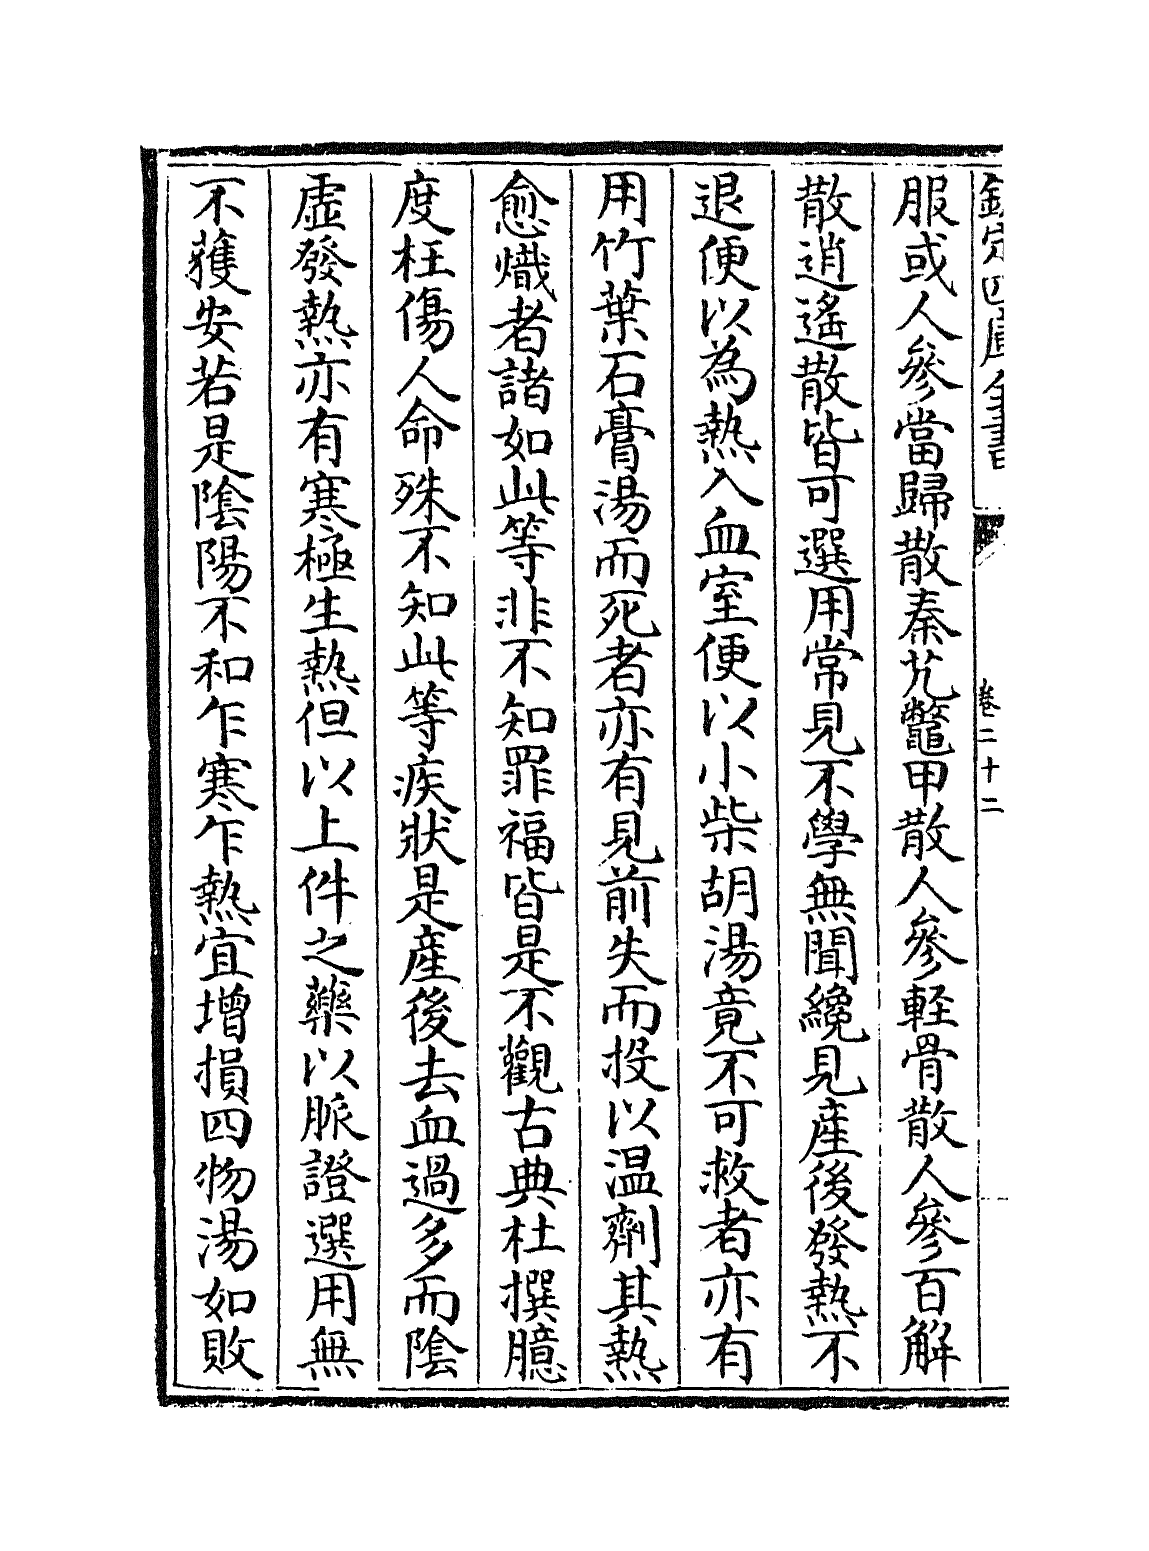 欽定四庫全書
卷二十二
服或人參當歸散秦艽鼈甲散人參軽骨散人參百解
散逍遙散皆可選用常見不學無聞纔見産後發熱不
退便以為熱入血室便以小柴胡湯竟不可救者亦有
用竹葉石膏湯而死者亦有見前失而投以温劑其熱
愈熾者諸如此等非不知罪福皆是不觀古典杜撰臆
度枉傷人命殊不知此等疾狀是産後去血過多而隂
虛發熱亦有寒極生熱但以上件之藥以脈證選用無
不獲安若是隂陽不和乍寒乍熱宜增損四物湯如敗